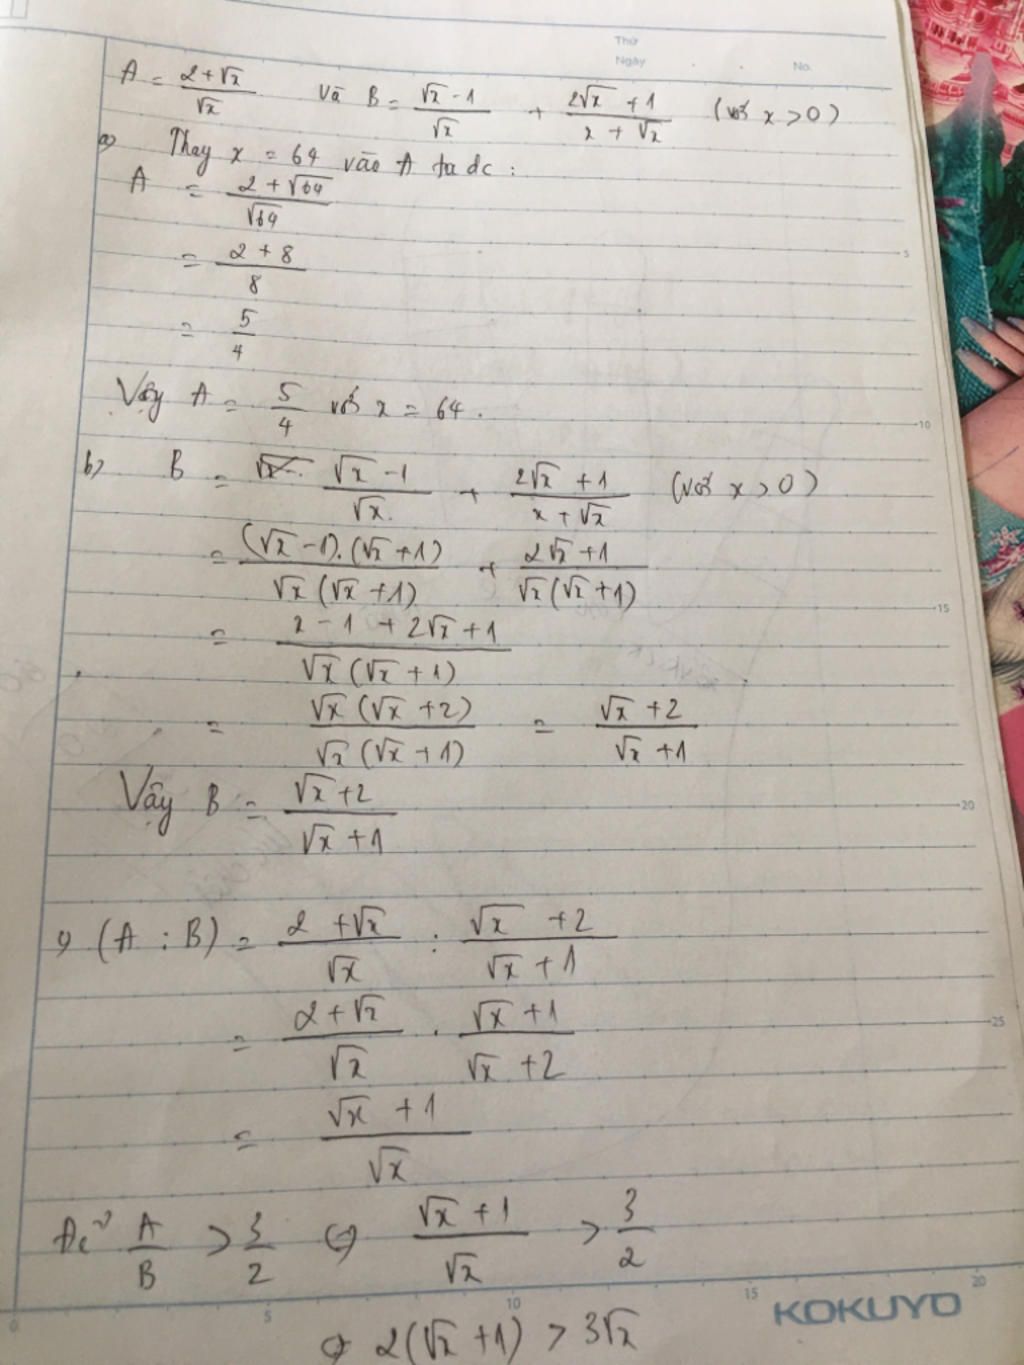 Thứ
Ngày No.
A = (2 + √x)/√x Và B = (√x - 1)/√x + (2√x + 1)/(x + √x) (với x > 0)
a) Thay x = 64 vào A ta dc :
A = (2 + √64)/√64
= (2 + 8)/8
= 5/4
Vậy A = 5/4 với x = 64.
b) B = (√x - 1)/√x + (2√x + 1)/(x + √x) (với x > 0)
= ((√x - 1).(√x + 1))/(√x (√x + 1)) + (2√x + 1)/(√x (√x + 1))
= (x - 1 + 2√x + 1)/(√x (√x + 1))
= (√x (√x + 2))/(√x (√x + 1)) = (√x + 2)/(√x + 1)
Vậy B = (√x + 2)/(√x + 1)
c) (A : B) = (2 + √x)/√x : (√x + 2)/(√x + 1)
= (2 + √x)/√x . (√x + 1)/(√x + 2)
= (√x + 1)/√x
Để A/B > 3/2 ⇔ (√x + 1)/√x > 3/2
⇔ 2(√x + 1) > 3√x
5
10
15
20
25
0 5 10 15 20
KOKUYO